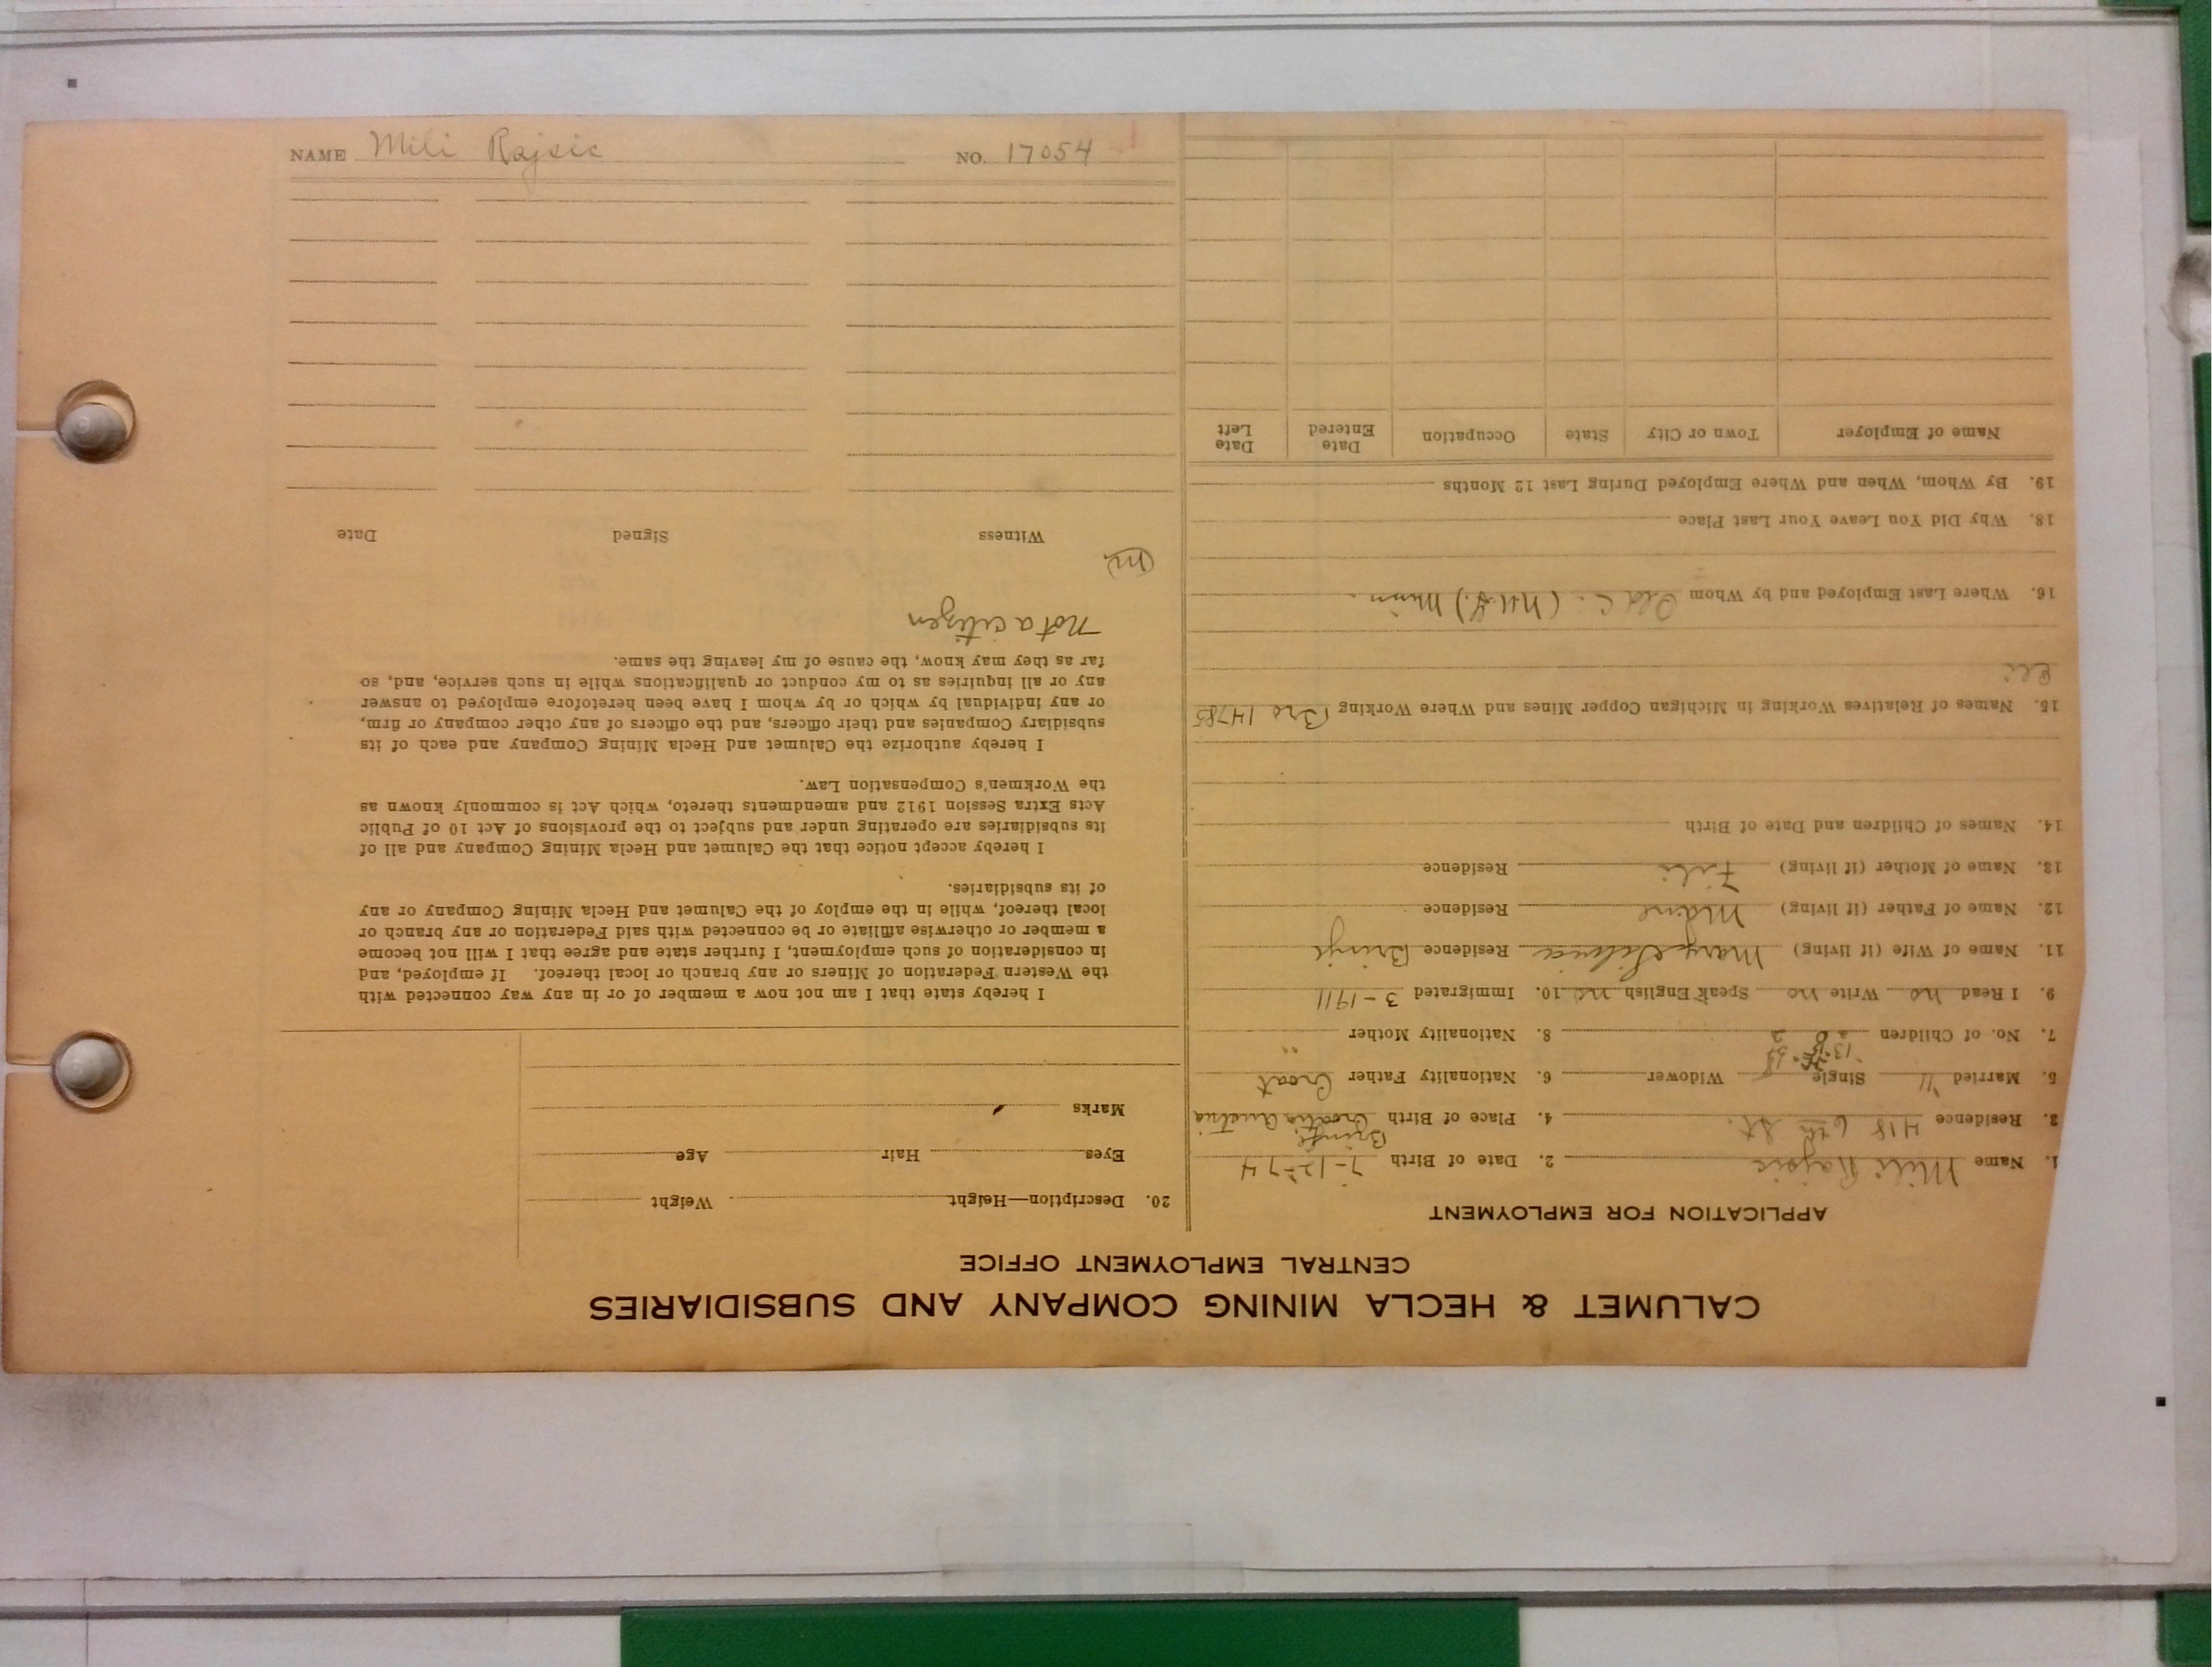 NAME Mili Rajsic NO. 17054
CALUMET & HECLA MINING COMPANY AND SUBSIDIARIES
CENTRAL EMPLOYMENT OFFICE
APPLICATION FOR EMPLOYMENT
1. Name Mili Rajsic 2. Date of Birth 7-12-74
3. Residence 418 6th St. 4. Place of Birth Croatia Austria
5. Married 11 Single Widower 6. Nationality Father Croat
7. No. of Children 8. Nationality Mother "
9. I Read no Write no Speak English no 10. Immigrated 3-1911
11. Name of Wife (if living) Mary Residence
12. Name of Father (if living) Residence
13. Name of Mother (if living) Residence
14. Names of Children and Date of Birth
15. Names of Relatives Working in Michigan Copper Mines and Where Working Bro 14785
Eli
16. Where Last Employed and by Whom Old C.
18. Why Did You Leave Your Last Place
19. By Whom, When and Where Employed During Last 12 Months
Name of Employer Town or City State Occupation Date Entered Date Left
20. Description—Height Weight
Eyes Hair Age
Marks
I hereby state that I am not now a member of or in any way connected with
the Western Federation of Miners or any branch or local thereof. If employed, and
in consideration of such employment, I further state and agree that I will not become
a member or otherwise affiliate or be connected with said Federation or any branch or
local thereof, while in the employ of the Calumet and Hecla Mining Company or any
of its subsidiaries.
I hereby accept notice that the Calumet and Hecla Mining Company and all of
its subsidiaries are operating under and subject to the provisions of Act 10 of Public
Acts Extra Session 1912 and amendments thereto, which Act is commonly known as
the Workmen's Compensation Law.
I hereby authorize the Calumet and Hecla Mining Company and each of its
subsidiary Companies and their officers, and the officers of any other company or firm,
or any individual by which or by whom I have been heretofore employed to answer
any or all inquiries as to my conduct or qualifications while in such service, and, so
far as they may know, the cause of my leaving the same.
Not a citizen
m
Witness Signed Date